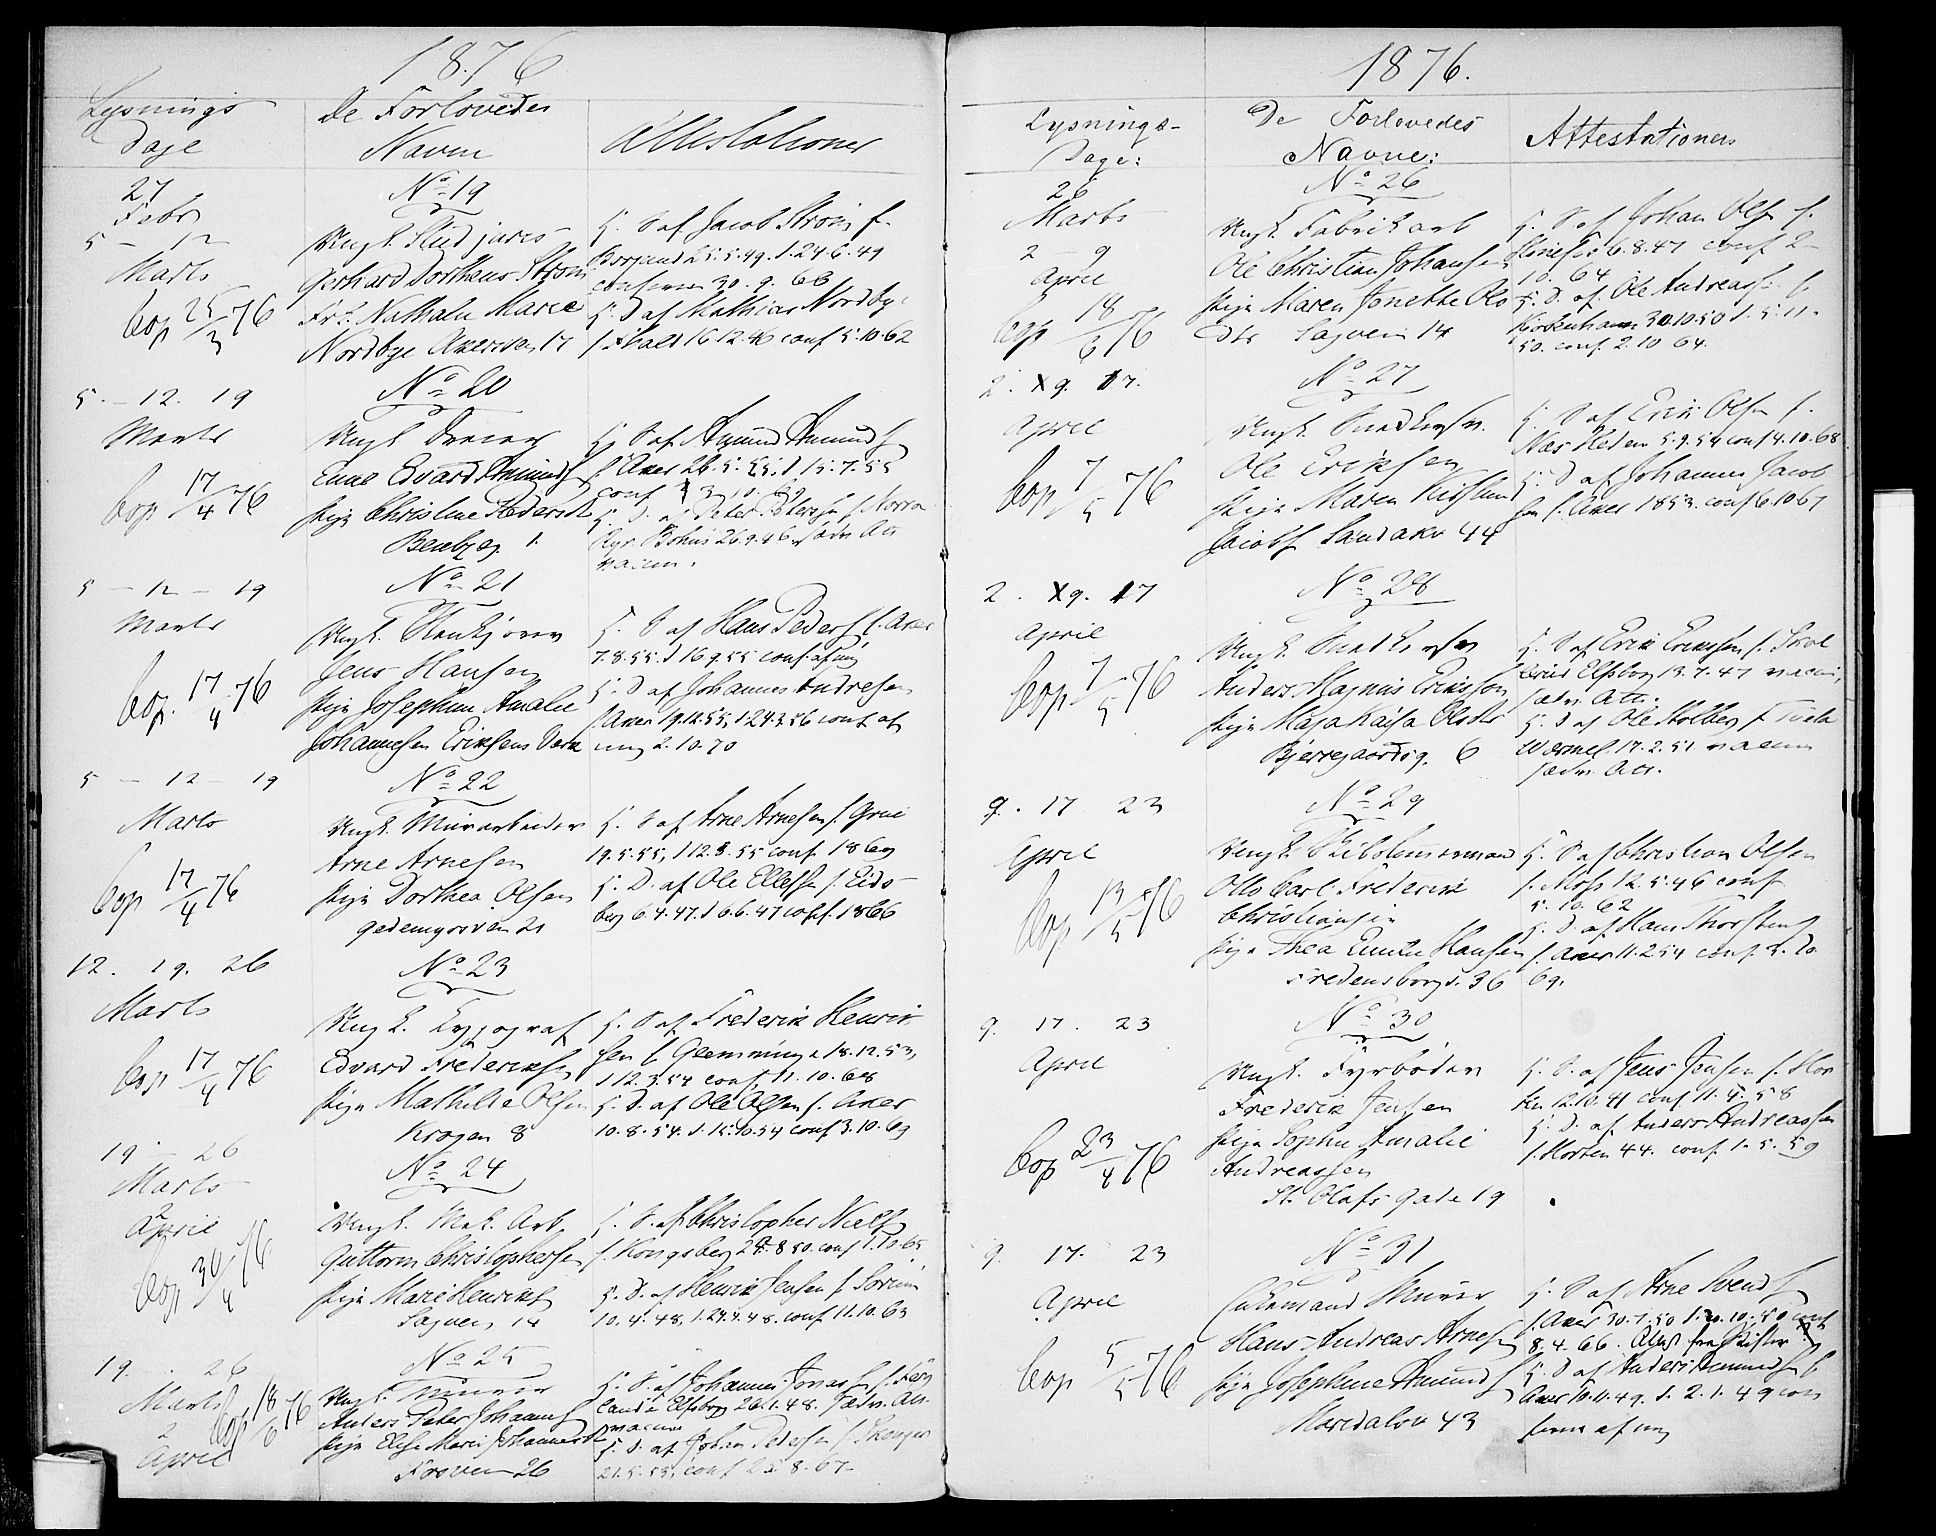 1876
Lysnings
Dage
De Forlovedes
Navne
Attestationer
27
Febr
5 - 12
Marts
Cop 25/3 76
No 19
Ungk. Stud juris
Gerhard Dortheus Strøm
Frk. Nathalie Marie
Nordbye Akersvn 17
S. af Jacob Strøm f.
Borgund 25.5.49. d. 24.6.49
confirm 30. 9. 66
D af Mathias Nordbye
16.12.46 conf 5.10.62
5 - 12. 19
Marts
Cop 17/4 76
No 20
Ungk
Edvard Amunds
Pige Christine Peders
1.
S af Amund Amunds
f Aker 26.5.55. d 15.7.55
conf
D. af Peter Peters f. Norra
Bohus 26.9.46
5 - 12 - 19
Marts
Cop. 17/4 76
No 21
Ungk.
Jens Hansen
Pige Josephine Amalie
Johannesen Eriksens
S af Hans Peders f. Aker
7.8.55. d 16 9.55 conf. af mig
D af Johannes Andresen
f Aker 19.12.55, d 24.3.56 conf af
mig 2.10.70
5 - 12 - 19
Marts
Cop 17/4 76
No 22
Ungk. Murarbeider
Arne Arnesen
Pige Dorthea Olsen
21
S af Arne Arnesen f. Grue
19.5.55, d 12.8.55 conf. 1869
D. af Ole Ellefsen f. Eids-
berg 6.4.47. d 6.6.47 conf. 1866
12. 19. 26
Marts
Cop 17/4 76
No 23
Ungk. Typograf
Edvard Frederiks
Pige Mathilde Olsen
Krogen 8
S af Frederik Henrik
sen f. Glemminge 18.12.53,
d 12.3.54 conf. 11.10.68
D. af Ole Olsen f. Aker
10.8.54. d. 15.10.54 conf 3.10.69
19 - 26
Marts
2
April
Cop 30/4 76
No 24
Ungk. Mek. Arb.
Guttorm Christophersen
Pige Marie Henriks
Sagven 14
S. af Christopher Niels
f. Kongsberg 24.8 50. conf 1.10.65
D. af Henrik Jensen f. Sørum
10.4.48, d. 24.4.48. conf 11.10.63
19. - 26
Marts
2
April
Cop 18/6 76
No 25
Ungk. Murer
Anders Peter Johannes
Pige Elise Marie Johannesd
Fosven 26
S. af Johannes Jonas f. Fer
Elfsborg 26.1.48. Fædn. Att.
D. af Johan Peders f. Skoger
21.5.53, conf 8.67
1876.
Lysnings-
Dage:
De Forlovedes
Navne:
Attestationer
26
Marts
2 - 9
April
Cop 18/6 76
No 26
Ungk. Fabrikarb
Ole Christian Johansen
Pige Maren Jonette Ols
Dtr Sagveien 14
S af Johan Olsen f.
6.8.47 conf 2-
10. 64
D. af. Ole Andreas f.
Kjøbenhavn 30.10.50 d. 5.11-
50. conf. 2.10 64.
2. X9. 17.
April
Cop 7/5 76
No 27
Ungk.
Ole Eriksen
Pige Maren
Jacobs Sandaker 44
S af Erik Olsen f.
5.9.54 conf 4.10.68
D. af Johannes Jacob
sen f. Aker 1853. conf 6.10 67
2. X9. 17
April
Cop 7/5 76
No 28
Ungk.
Anders Magnus Eriksson
Pige Maja Kaisa Olsdtr
Bjerregaardsg. 6
S af Erik Eriksson f.
Elfsborg 13.7.47
fædn. Att.
D af Ole Stolberg f.
Wermel. 17.2.51
fædn. Att.
9. 17 23
April
Cop 13/5 76
No 29
Ungk. Skibstømmermand
Olls Carl Frederik
Christiansen
Pige Thea Emilie Hansen
Fredensborgv. 36
S af Christian Olsen
f. Moss 12.5.46 conf
5.10.62
D. af Hans Thorstens
f. Aker 11.2 54 conf. 3. 10
69.
9. 17. 23
April
Cop 23/4 76
No 30
Ungk. Fyrbøder
Frederik Jensen
Pige Sophie Amalie
Andreassen
St. Olafs Gade 19
S. af Jens Jensen f. Hor
ten 12.10.41 conf 11.4.58
D. af Anders Andreassen
f. Horten 44. conf. 1. 5. 59
9. 17. 23
April
Cop 5/5 76
No 31
Enkemand Murer
Hans Andreas Arnesen
Pige Josephine Amunds
Maridalsv 43
S af Arne Svends
f. Aker 30.7.50 d. 20.10.50 conf
8.4.66.
D af Anders Amundsen f.
Aker 10.11.49. d. 2.1.49 con
firm af mig